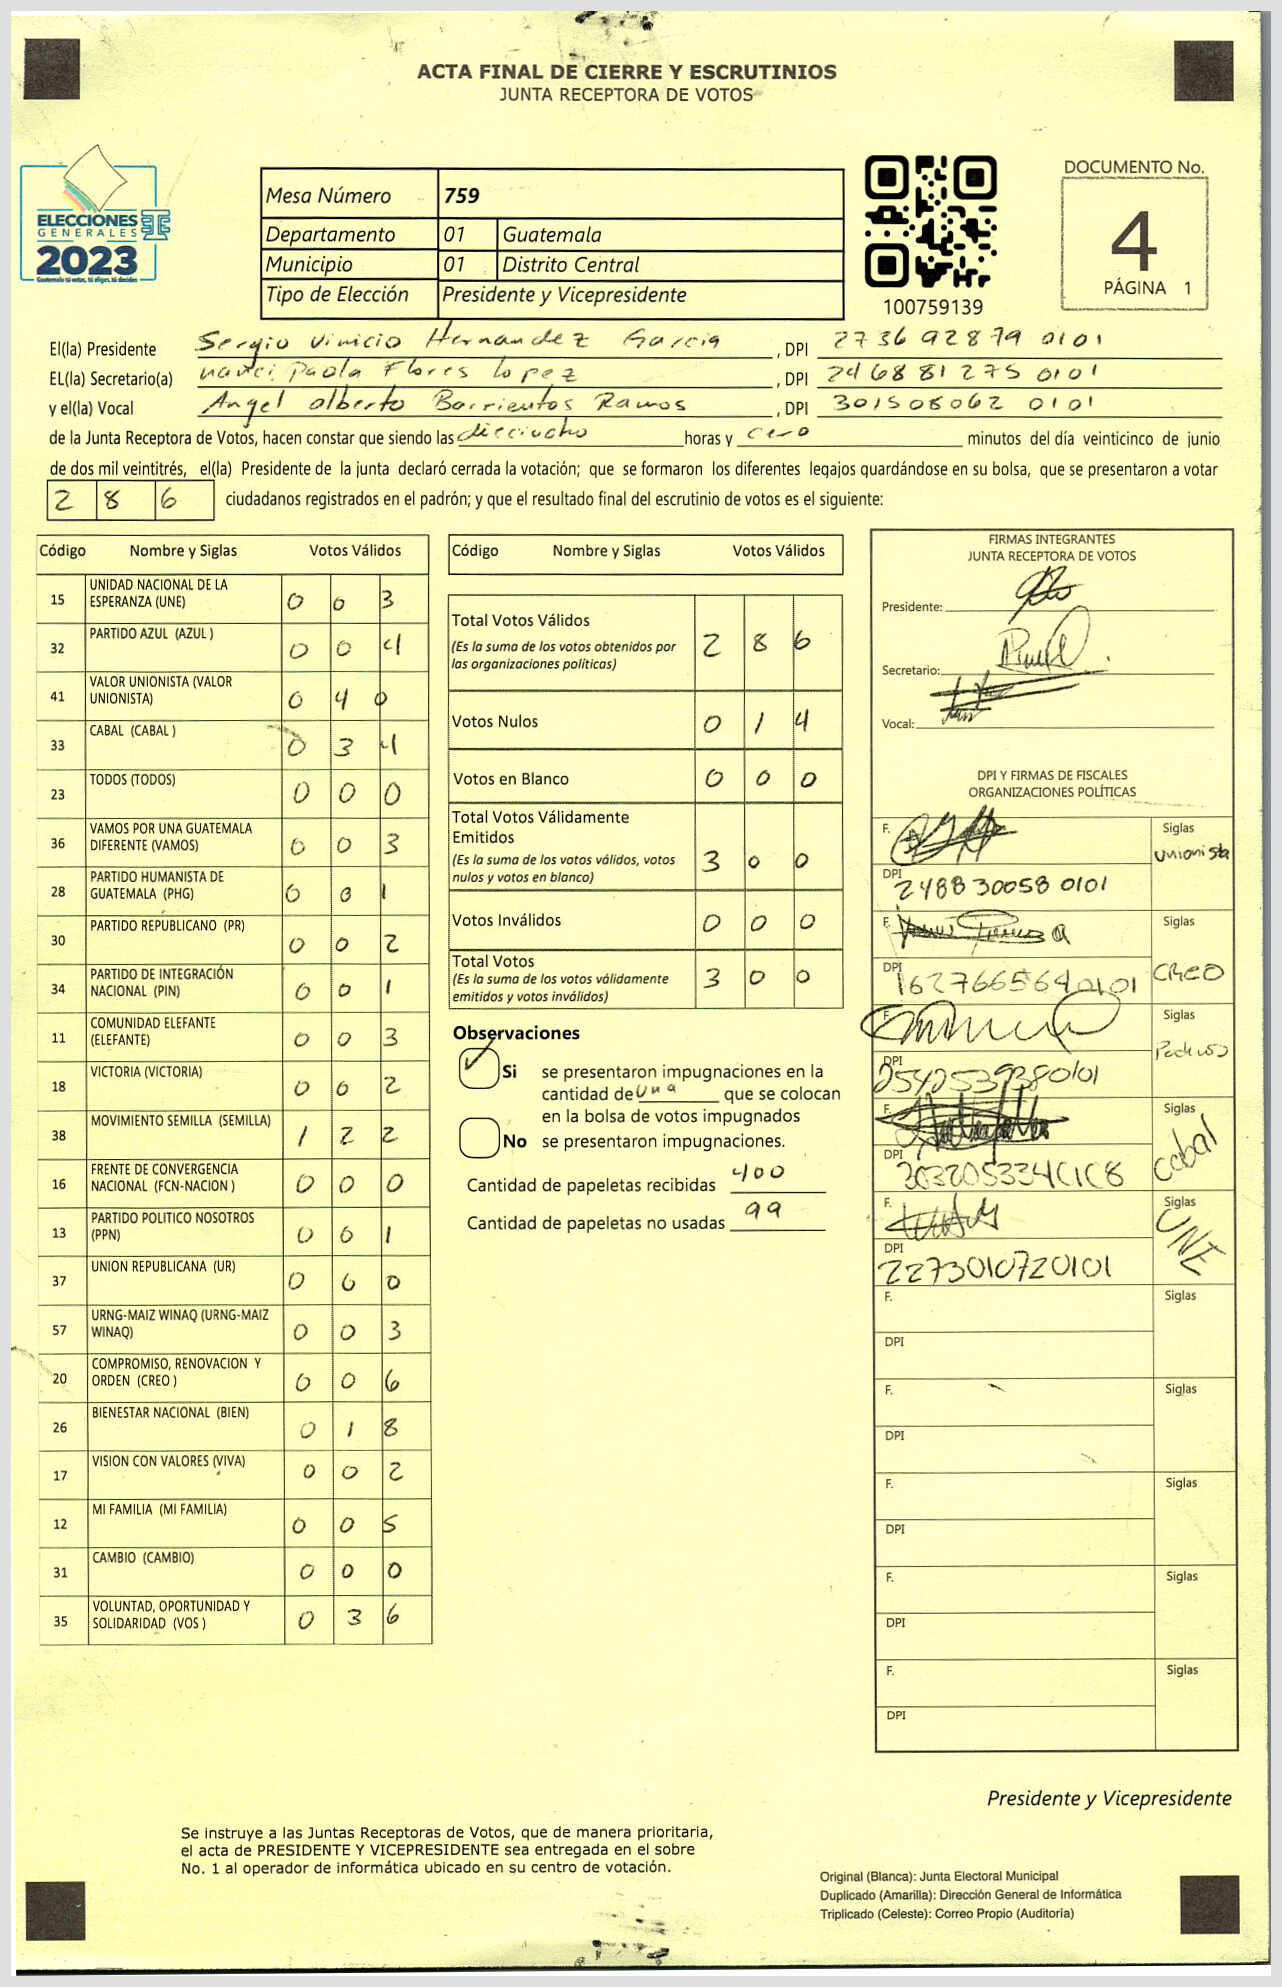 ACTA FINAL DE CIERRE Y ESCRUTINIOS
JUNTA RECEPTORA DE VOTOS
ELECCIONES
GENERALES
2023
Guatemala tú votas, tú eliges, tú decides
Mesa Número 759
Departamento 01 Guatemala
Municipio 01 Distrito Central
Tipo de Elección Presidente y Vicepresidente
100759139
DOCUMENTO No.
4
PÁGINA 1
El(la) Presidente Sergio Vinicio Hernandez Garcia , DPI 2736928790101
EL(la) Secretario(a) Paola Flores Lopez , DPI 2468812750101
y el(la) Vocal Angel alberto Barrientos Ramos , DPI 3015080620101
de la Junta Receptora de Votos, hacen constar que siendo las dieciocho horas y cero minutos del día veinticinco de junio
de dos mil veintitrés, el(la) Presidente de la junta declaró cerrada la votación; que se formaron los diferentes legajos quardándose en su bolsa, que se presentaron a votar
2 8 6 ciudadanos registrados en el padrón; y que el resultado final del escrutinio de votos es el siguiente:
Código Nombre y Siglas Votos Válidos
15 UNIDAD NACIONAL DE LA ESPERANZA (UNE) 0 0 3
32 PARTIDO AZUL (AZUL ) 0 0 4
41 VALOR UNIONISTA (VALOR UNIONISTA) 0 4 0
33 CABAL (CABAL ) 0 3 4
23 TODOS (TODOS) 0 0 0
36 VAMOS POR UNA GUATEMALA DIFERENTE (VAMOS) 0 0 3
28 PARTIDO HUMANISTA DE GUATEMALA (PHG) 0 0 1
30 PARTIDO REPUBLICANO (PR) 0 0 2
34 PARTIDO DE INTEGRACIÓN NACIONAL (PIN) 0 0 1
11 COMUNIDAD ELEFANTE (ELEFANTE) 0 0 3
18 VICTORIA (VICTORIA) 0 0 2
38 MOVIMIENTO SEMILLA (SEMILLA) 1 2 2
16 FRENTE DE CONVERGENCIA NACIONAL (FCN-NACION ) 0 0 0
13 PARTIDO POLITICO NOSOTROS (PPN) 0 0 1
37 UNION REPUBLICANA (UR) 0 0 0
57 URNG-MAIZ WINAQ (URNG-MAIZ WINAQ) 0 0 3
20 COMPROMISO, RENOVACION Y ORDEN (CREO ) 0 0 6
26 BIENESTAR NACIONAL (BIEN) 0 1 8
17 VISION CON VALORES (VIVA) 0 0 2
12 MI FAMILIA (MI FAMILIA) 0 0 5
31 CAMBIO (CAMBIO) 0 0 0
35 VOLUNTAD, OPORTUNIDAD Y SOLIDARIDAD (VOS ) 0 3 6
Código Nombre y Siglas Votos Válidos
Total Votos Válidos 2 8 6
(Es la suma de los votos obtenidos por
las organizaciones políticas)
Votos Nulos 0 1 4
Votos en Blanco 0 0 0
Total Votos Válidamente
Emitidos 3 0 0
(Es la suma de los votos válidos, votos
nulos y votos en blanco)
Votos Inválidos 0 0 0
Total Votos 3 0 0
(Es la suma de los votos válidamente
emitidos y votos inválidos)
Observaciones
Si se presentaron impugnaciones en la
cantidad de una que se colocan
en la bolsa de votos impugnados
No se presentaron impugnaciones.
Cantidad de papeletas recibidas 400
Cantidad de papeletas no usadas 99
FIRMAS INTEGRANTES
JUNTA RECEPTORA DE VOTOS
Presidente:
Secretario:
Vocal:
DPI Y FIRMAS DE FISCALES
ORGANIZACIONES POLÍTICAS
F. Siglas
Unionista
DPI
2488300580101
F. Siglas
DPI CREO
1627665640101
F. Siglas
DPI
2542539380101
F. Siglas
DPI Cabal
F. Siglas
DPI UNE
2273010720101
F. Siglas
DPI
F. Siglas
DPI
F. Siglas
DPI
F. Siglas
DPI
F. Siglas
DPI
Presidente y Vicepresidente
Se instruye a las Juntas Receptoras de Votos, que de manera prioritaria,
el acta de PRESIDENTE Y VICEPRESIDENTE sea entregada en el sobre
No. 1 al operador de informática ubicado en su centro de votación.
Original (Blanca): Junta Electoral Municipal
Duplicado (Amarilla): Dirección General de Informática
Triplicado (Celeste): Correo Propio (Auditoria)